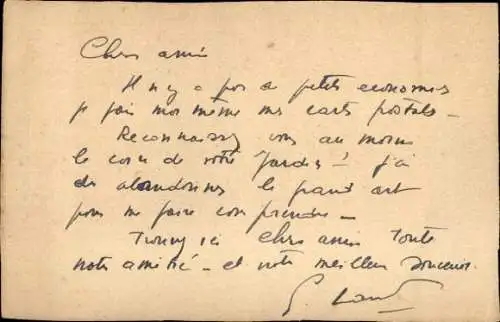 Chers amis
Il n'y a pas de petits economies
je fais moi même mes carts postals -
Reconnaissez vous au moins
le coin de votre "Jardin"! j'ai
du abandonner le grand art
pour me faire comprendre -
Trouvez ici chers amis toute
notre amitié - et notre meilleur souvenir